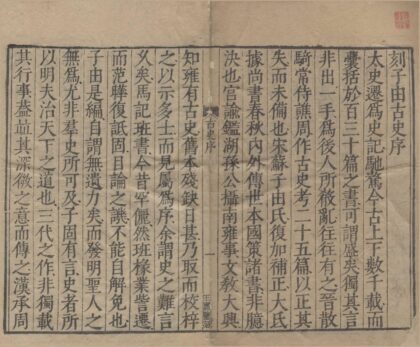 刻子由古史序
太史遷爲史記馳騖今古上下數千載而
囊括於百三十篇之書可謂盛矣獨其言
非出一手爲後人所殽亂往往有之晉散
騎常侍譙周作古史考二十五篇以正其
失而未備也宋蘇子由氏復加補正大氐
據尚書春秋内外傳世本國策諸書非臆
決也官諭鑑湖孫公攝南雍事文敎大興
古史序
一
知雍有古史舊本殘缺日甚乃取而校梓
之以示多士而見屬爲序余謂史之難言
乂矣馬記班書今昔罕儷然班椽業訾遷
而范曄復詆固目論之譏不能自解免也
子由是編自謂無遺力矣而發明聖人之
無爲尤非羣史所可及子固有言史者所
以明夫治天下之道也三代之作非獨載
其行事葢竝其深微之意而傳之漢承周